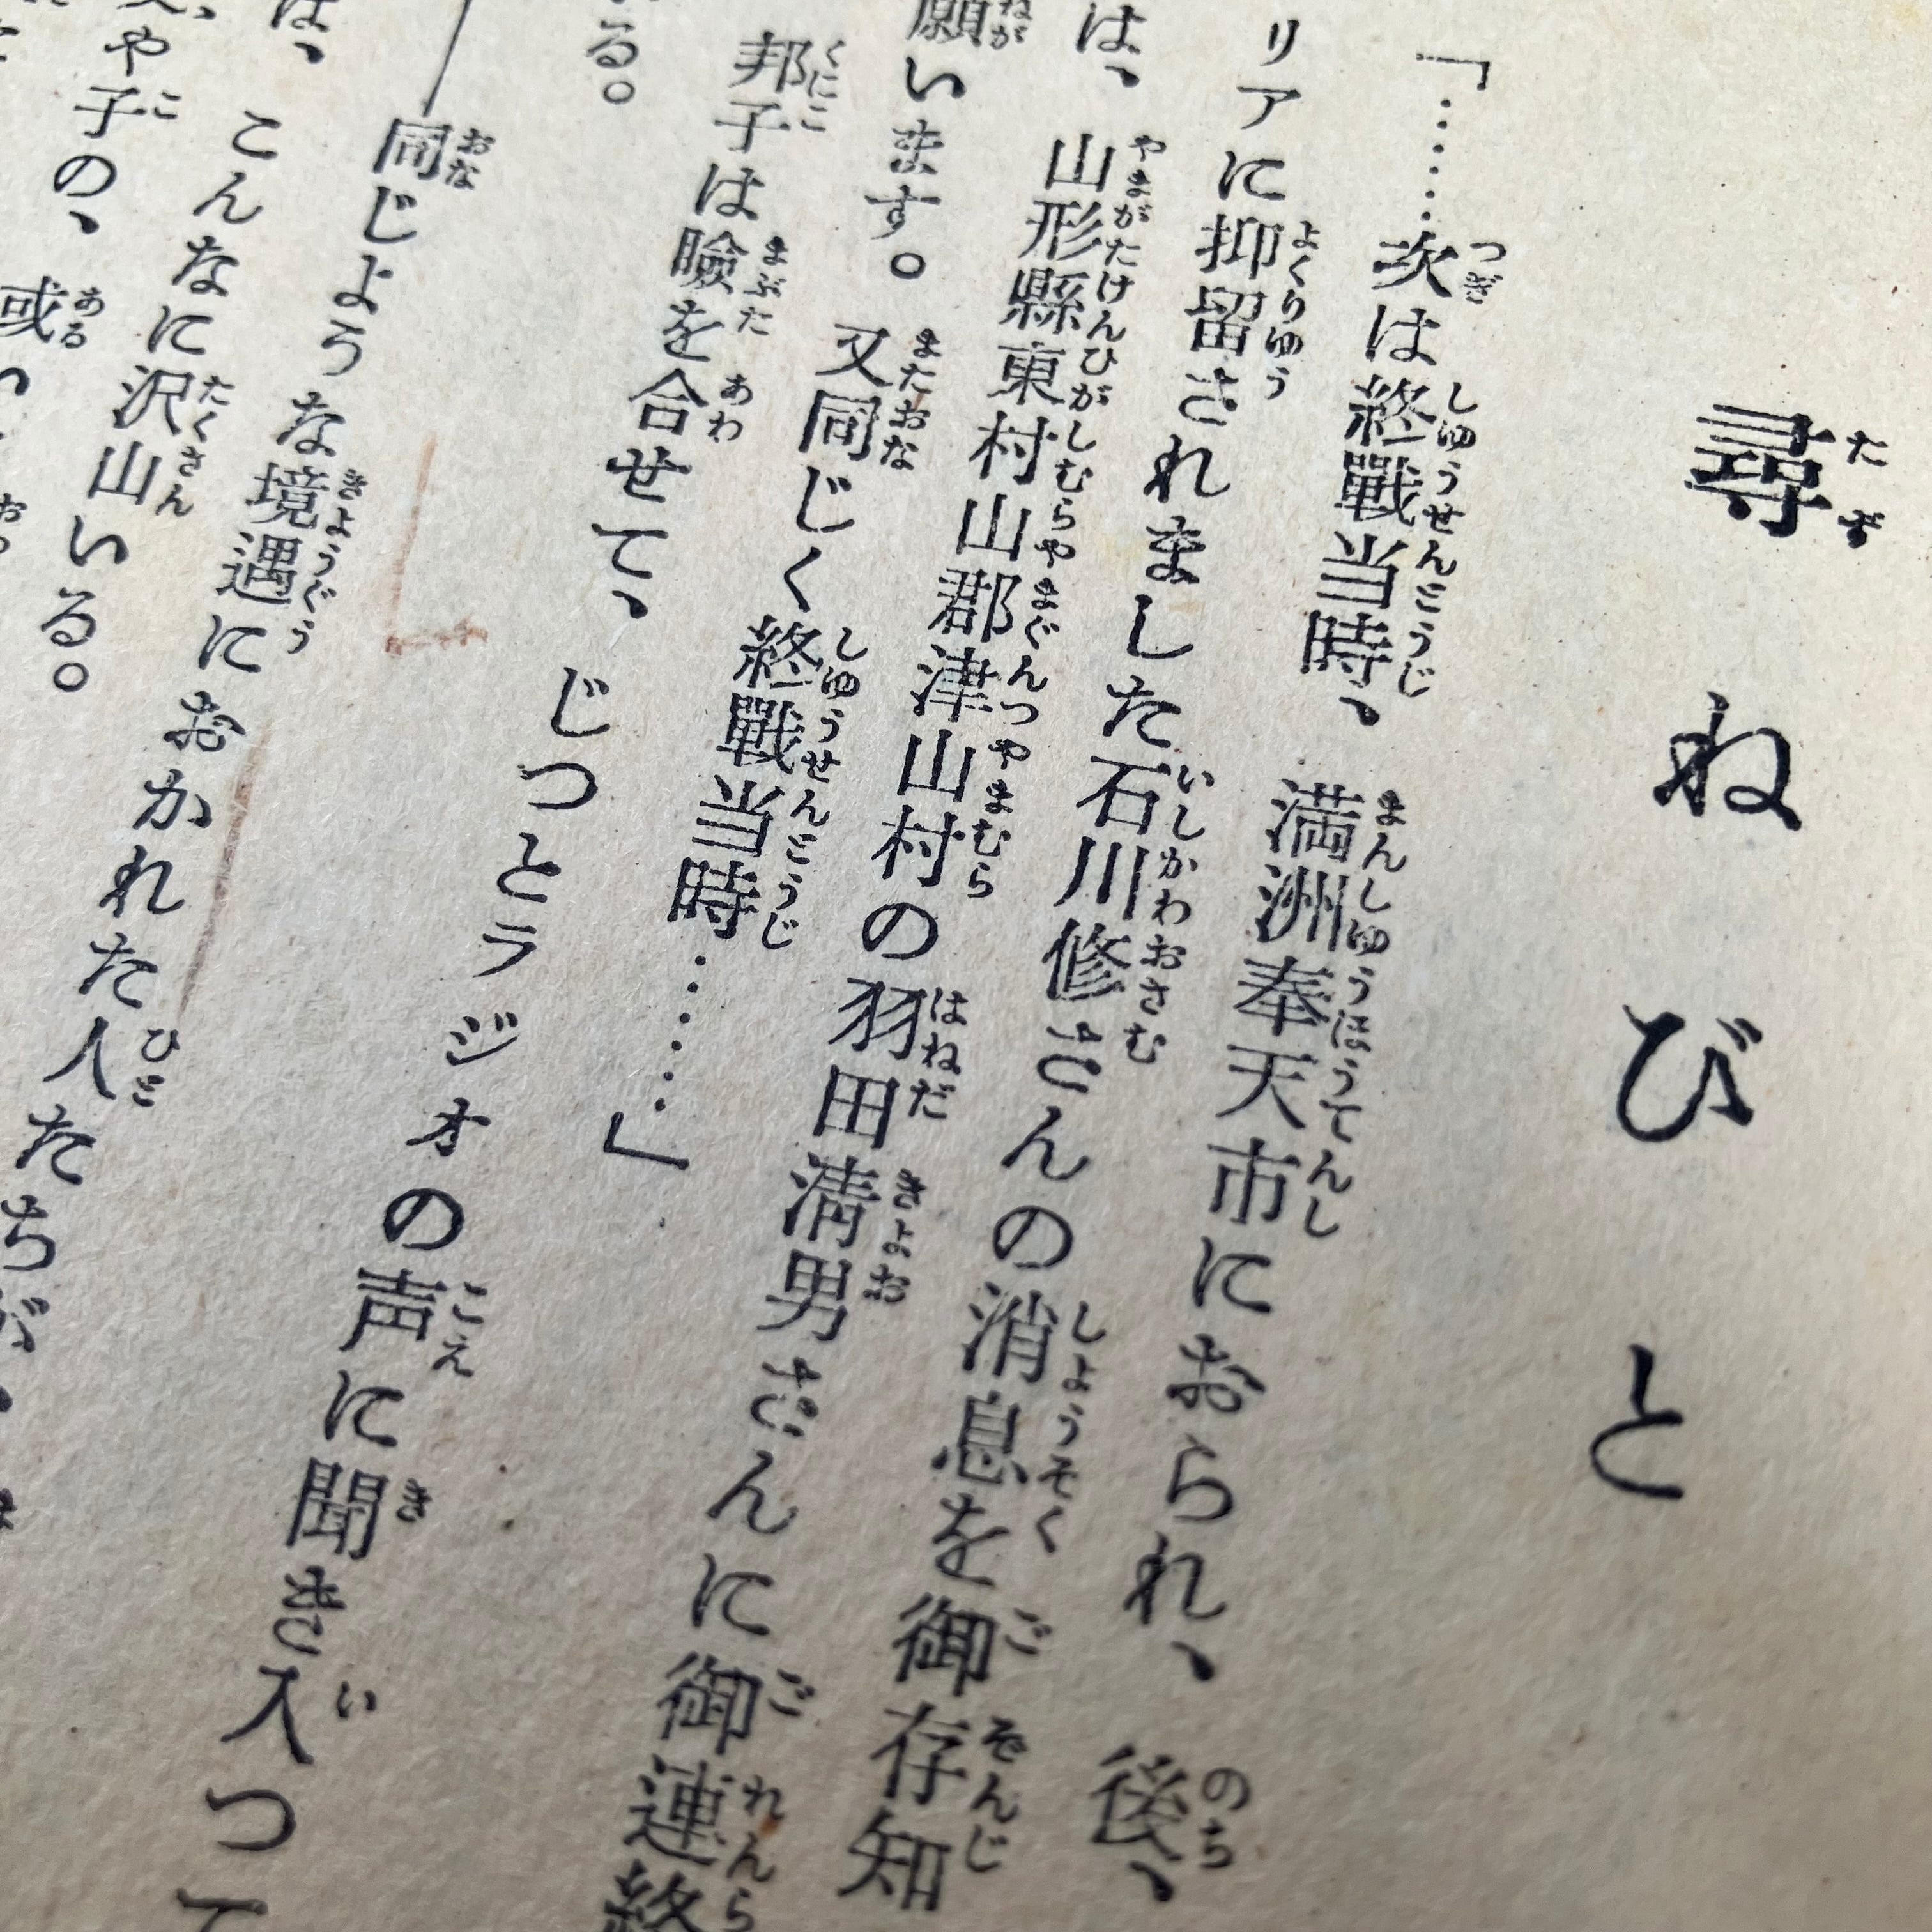 尋ねびと
「……次は終戰当時、満洲奉天市におられ、後、
リアに抑留されました石川修さんの消息を御存知
は、山形縣東村山郡津山村の羽田淸男さんに御連絡
願います。又同じく終戰当時……」
邦子は瞼を合せて、じつとラジオの声に聞き入つて
る。
同じような境遇におかれた人たちが、
は、こんなに沢山いる。
や子の、或い